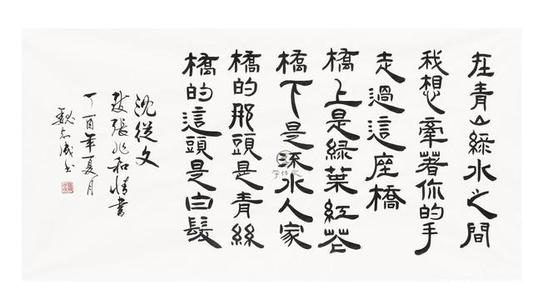 在青山綠水之間
我想牽著你的手
走過這座橋
橋上是綠葉紅花
橋下是流水人家
橋的那頭是青絲
橋的這頭是白髮
沈從文
致張兆和情書
丁酉年夏月
魏志成書